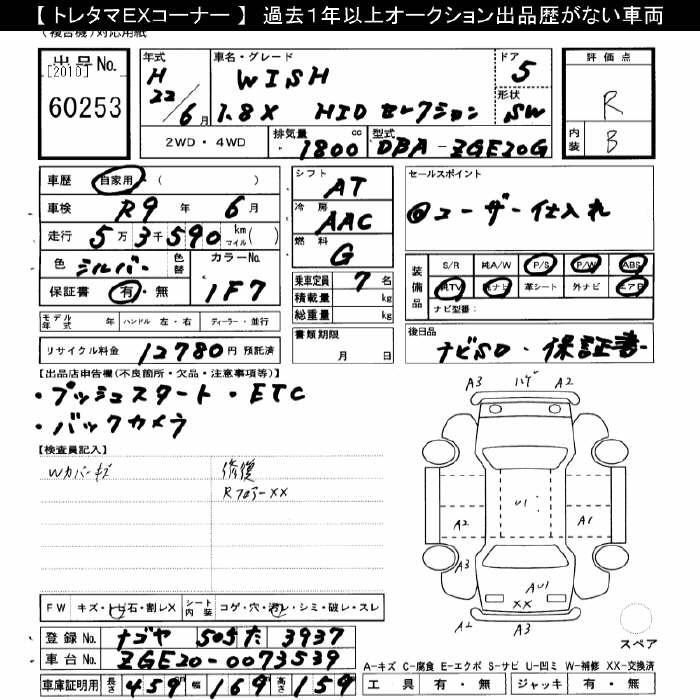 【 トレタマEXコーナー 】 過去１年以上オークション出品歴がない車両
出品No.
[2010]
60253
年式
H
22
6月
車名・グレード
WISH
1.8X HID セレクション
ドア
5
形状
SW
評価点
R
内装
B
2WD・4WD
排気量
1800 cc
型式
DBA-ZGE20G
車歴 自家用・( )
車検 R9 年 6 月
走行 5万3千590 km マイル( )
色 シルバー 色替
カラーNo.
1F7
保証書 有・無
シフト
AT
冷房
AAC
燃料
G
乗車定員 7 名
積載量 kg
総重量 kg
セールスポイント
◎ユーザー仕入れ
装備品
S/R 純A/W P/S P/W ABS
純TV 純ナビ 革シート 外ナビ エアB
ナビ型番：
モデル年式 年 ハンドル 左・右 ディーラー・並行
リサイクル料金 12780円 預託済
書類期限
月 日
後日品
ナビSD・保証書
【出品店申告欄(不良箇所・欠品・注意事項等)】
・プッシュスタート・ETC
・バックカメラ
【検査員記入】
Wカバーキズ
修復
Rフロアー××
A3 ハゲ A2
U1
A2
A1
A3
AU1
××
A2
A3
スペア
FW キズ・トビ石・割レX
シート内装 コゲ・穴・汚レ・シミ・破レ・スレ
登録No. ナゴヤ 505 た 3937
車台No. ZGE20-0073539
車庫証明用 長さ 459 幅 169 高さ 159
A-キズ C-腐食 E-エクボ S-サビ U-凹ミ W-補修 XX-交換済
工具 有・無 ジャッキ 有・無